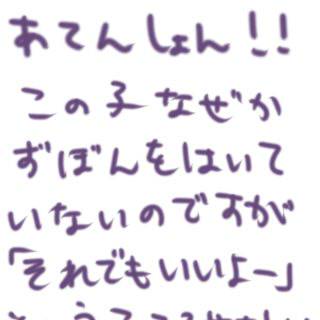 あてんしょん!!
この子なぜか
ずぼんをはいて
いないのですが
「それでもいいよー」